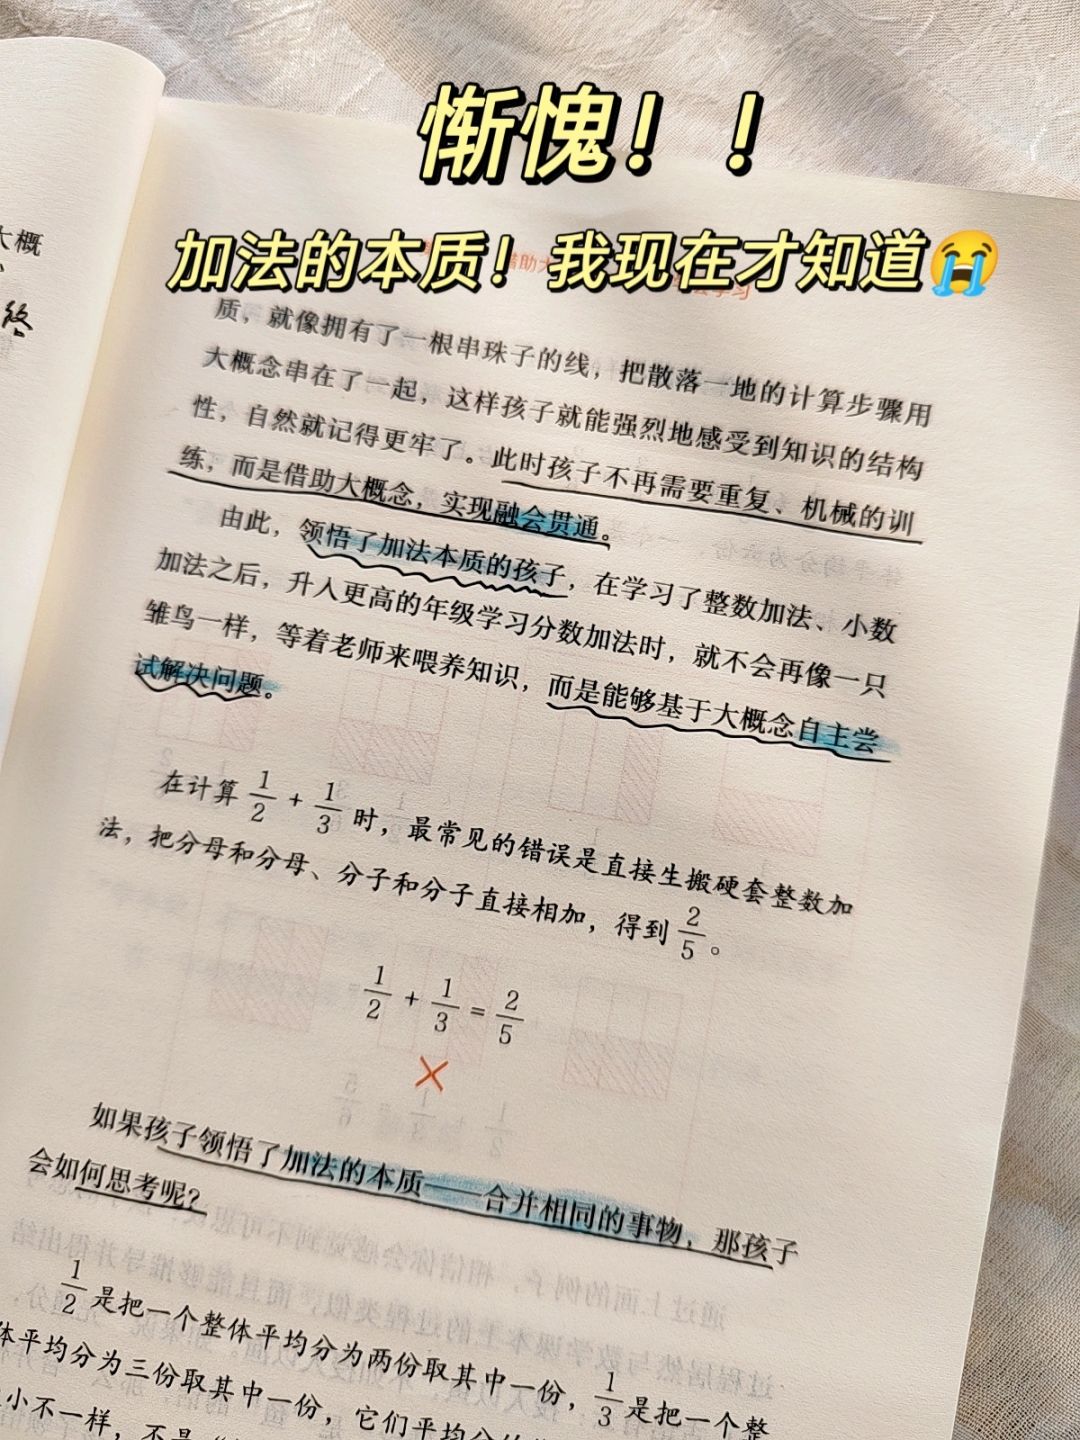 惭愧！！
加法的本质！我现在才知道😭
大概
终
质，就像拥有了一根串珠子的线，把散落一地的计算步骤用
大概念串在了一起，这样孩子就能强烈地感受到知识的结构
性，自然就记得更牢了。此时孩子不再需要重复、机械的训
练，而是借助大概念，实现融会贯通。
由此，领悟了加法本质的孩子，在学习了整数加法、小数
加法之后，升入更高的年级学习分数加法时，就不会再像一只
雏鸟一样，等着老师来喂养知识，而是能够基于大概念自主尝
试解决问题。
在计算 1/2 + 1/3 时，最常见的错误是直接生搬硬套整数加
法，把分母和分母、分子和分子直接相加，得到 2/5 。
1/2 + 1/3 = 2/5
×
如果孩子领悟了加法的本质——合并相同的事物，那孩子
会如何思考呢？
1/2 是把一个整体平均分为两份取其中一份，1/3 是把一个整
体平均分为三份取其中一份，它们平均分的
小不一样，不是